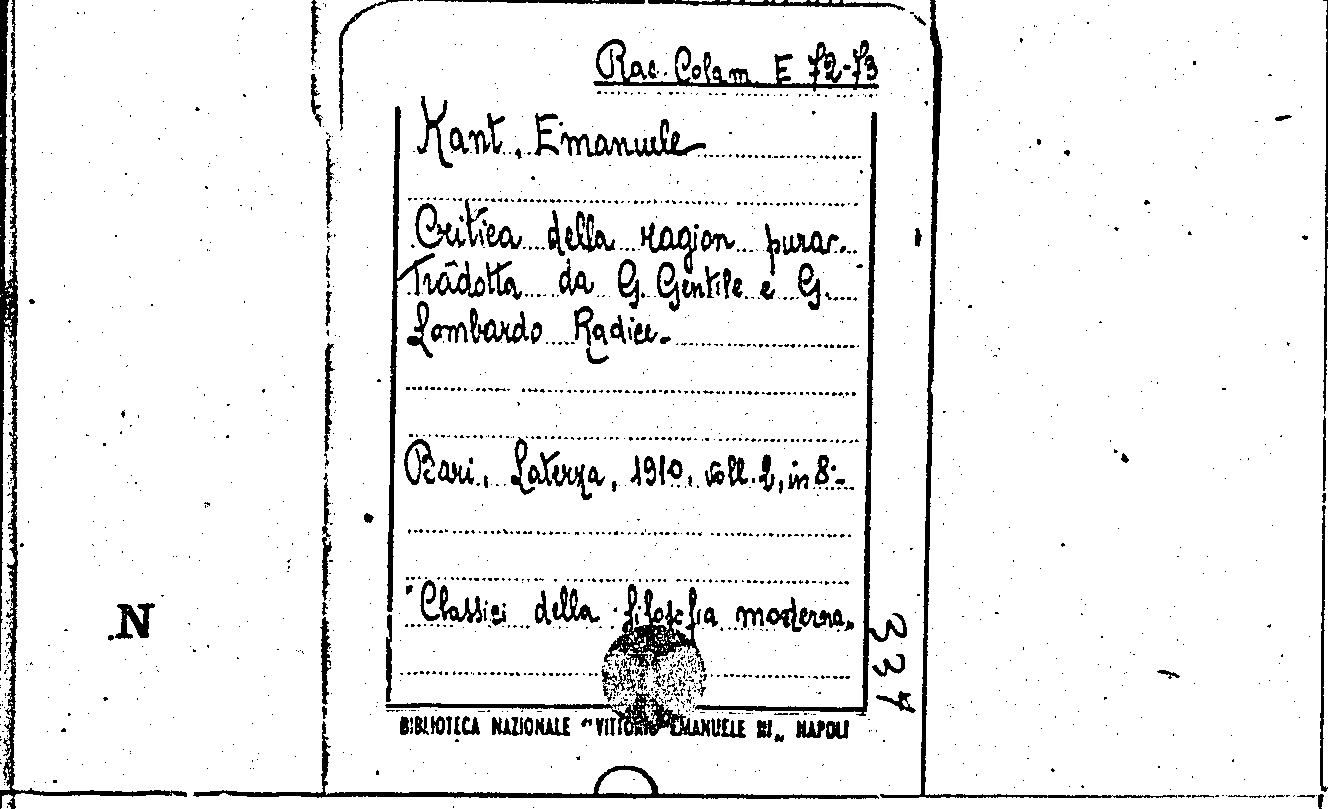 Rac. Colam E 72-73
Kant, Emanuele
Critica della ragion pura.
Tradotta da G. Gentile e G.
Lombardo Radice.
Bari, Laterza, 1910, voll. 2, in 8.
"Classici della filosofia moderna„
337
N
BIBLIOTECA NAZIONALE "VITTORIO EMANUELE III„ NAPOLI